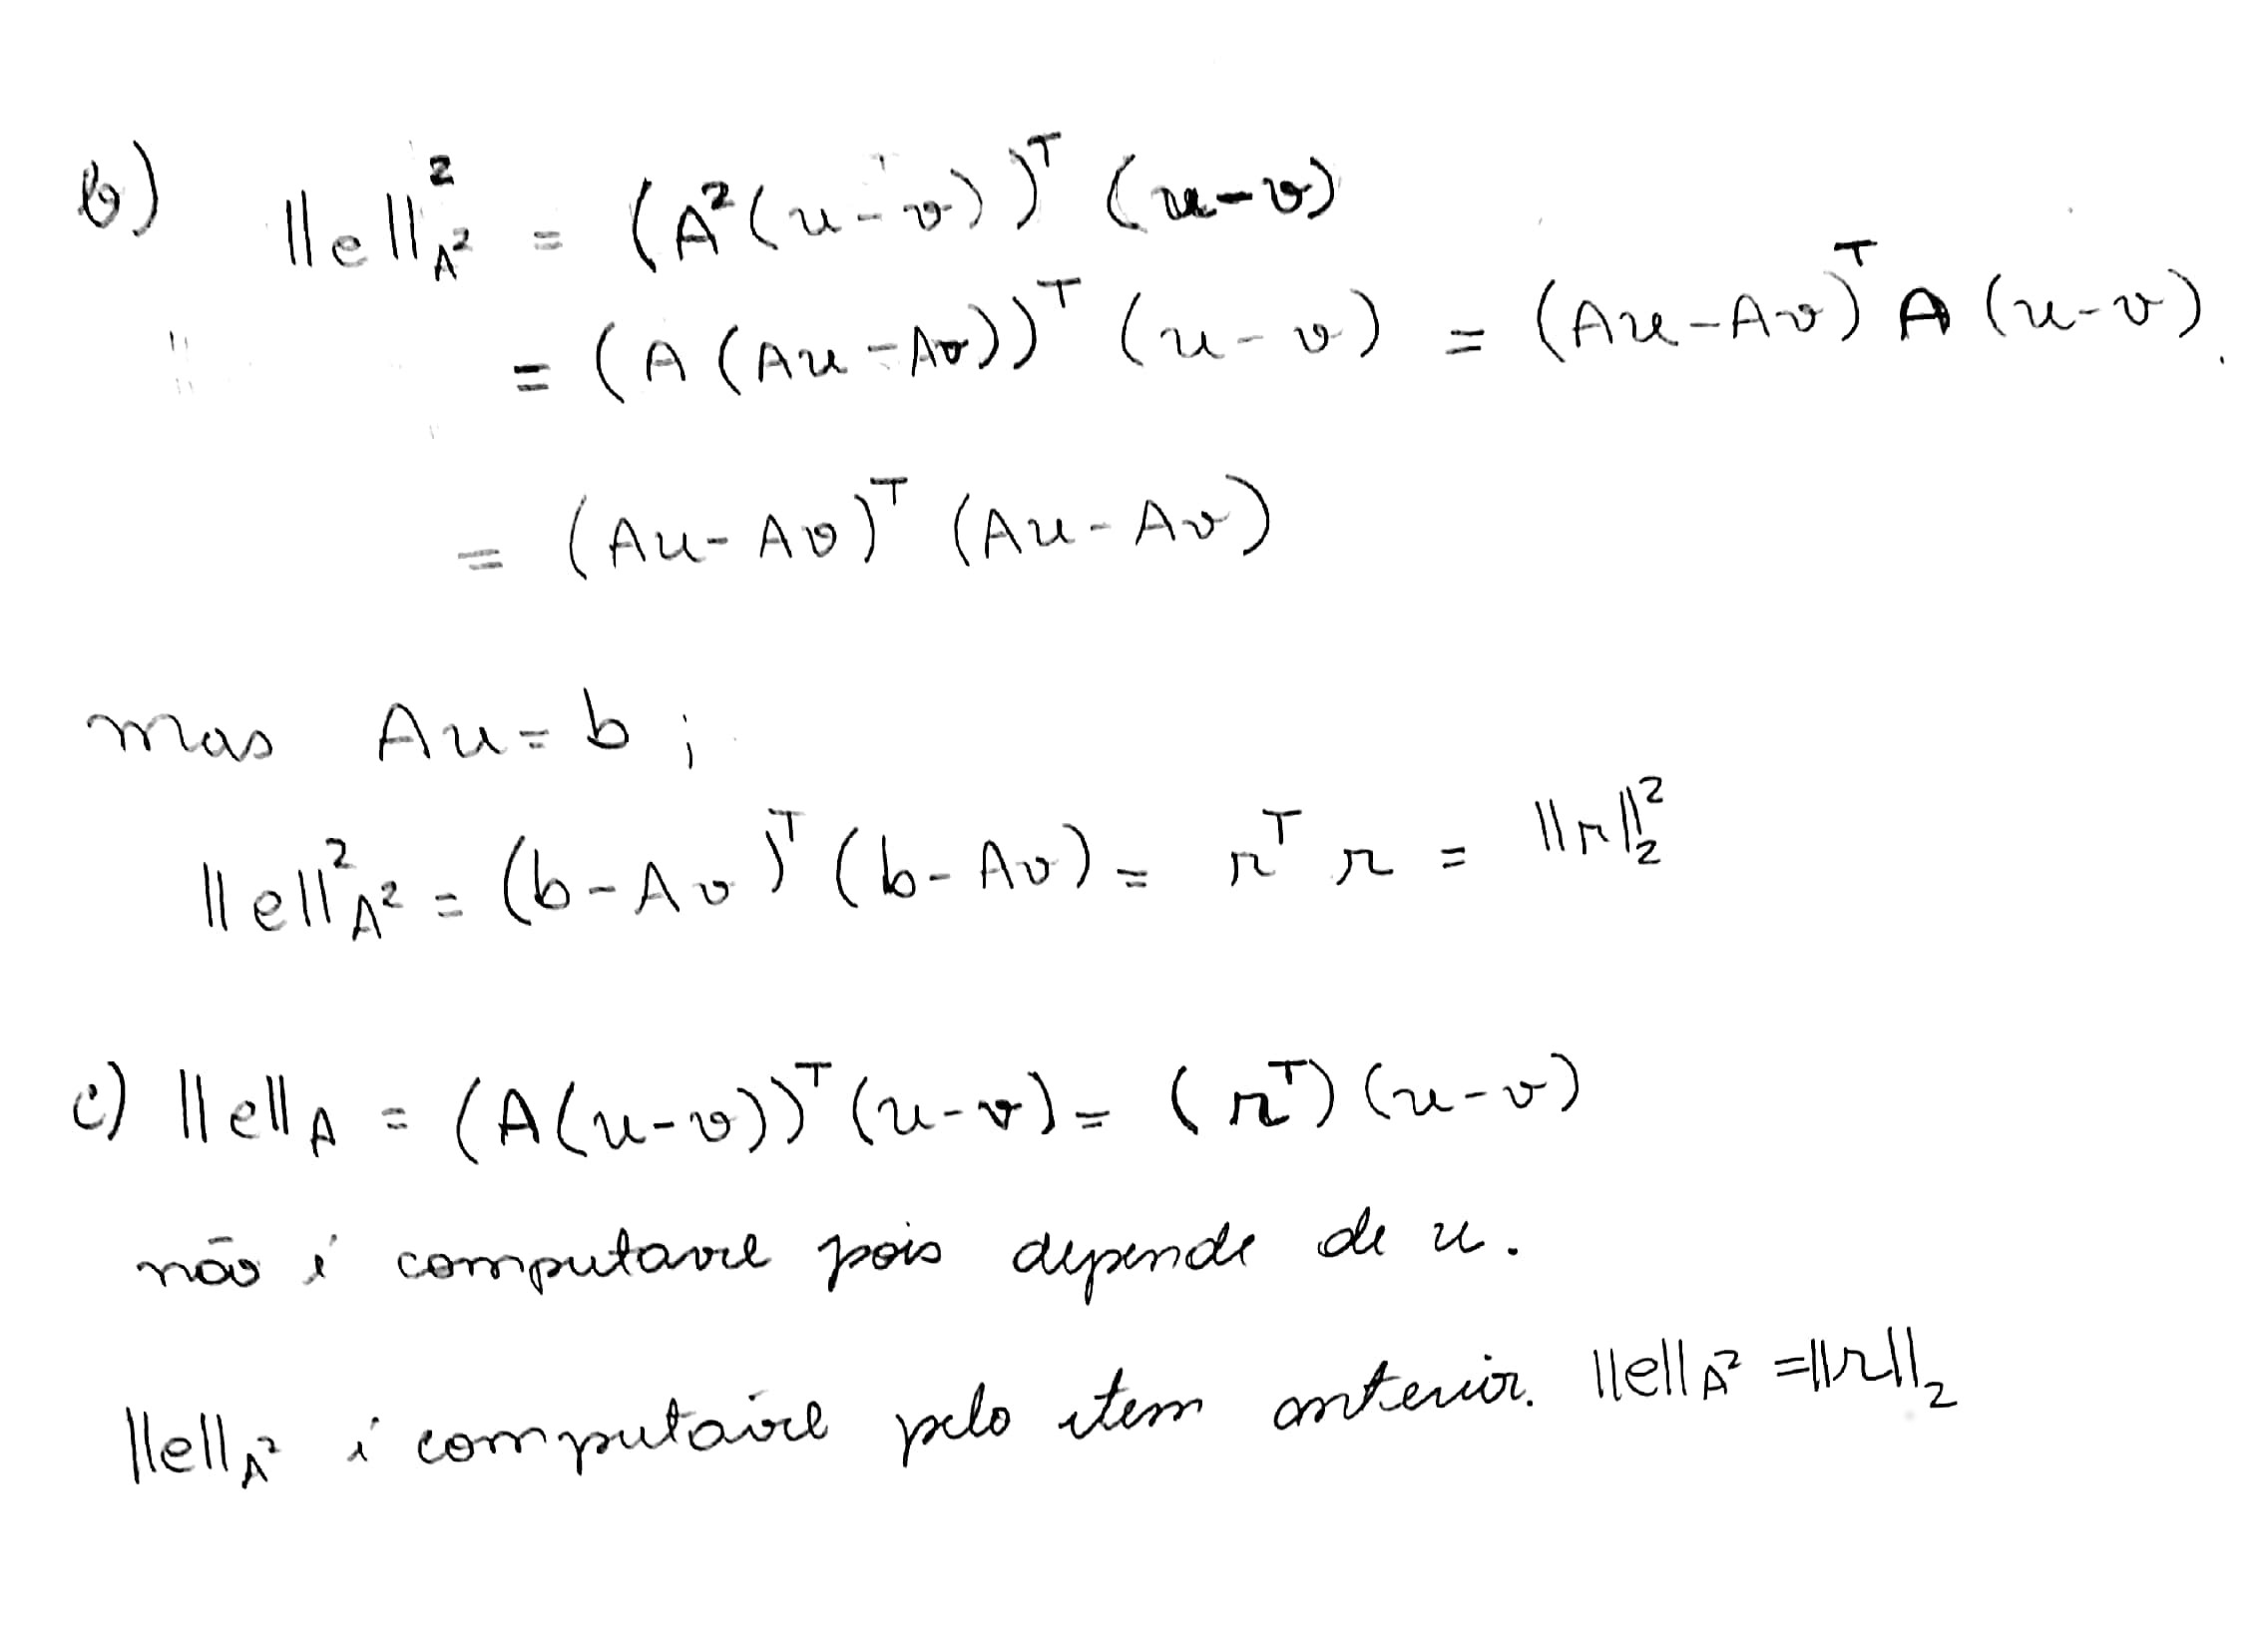 b) ||e||²_{A²} = (A²(u-v))^T (u-v)
= (A(Au-Av))^T (u-v) = (Au-Av)^T A (u-v).
= (Au-Av)^T (Au-Av)
mas Au = b ;
||e||²_{A²} = (b-Av)^T (b-Av) = r^T r = ||r||²_2
c) ||e||_A = (A(u-v))^T (u-v) = (r^T) (u-v)
não é computavel pois depende de u.
||e||_{A²} é computável pelo item anterior. ||e||_{A²} = ||r||_2